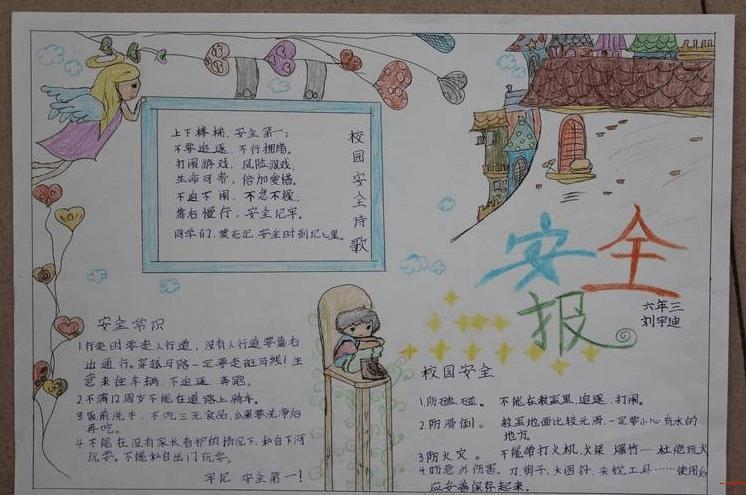 校园安全诗歌
上下楼梯、安全第一;
不要追逐、不行拥挤。
打闹游戏、风险游戏,
生命可贵、倍加爱惜。
不追不闹、不急不缓,
靠右慢行,安全记牢。
同学们,莫忘记,安全时刻记心里。
安全报
六年三
刘宇迪
安全常识
1.行走时要走人行道,没有人行道要靠右
边通行。穿越马路一定要走斑马线!注
意来往车辆、不追逐、奔跑。
2.不满12周岁不能在道路上骑车。
3.饭前洗手,不吃三无食品,瓜果要洗净后
再吃。
4.不能在没有家长看护的情况下,私自下河
玩耍。不能私自出门玩耍。
牢记 安全第一!
校园安全
1.防磕碰。 不能在教室里追逐、打闹。
2.防滑倒。 教室地面比较光滑,一定要小心有水的
地方。
3.防火灾。 不能带打火机、火柴、爆竹……杜绝玩火
4.防意外伤害。刀、剪子、大图针、尖锐工具……使用后
应妥善保存起来。